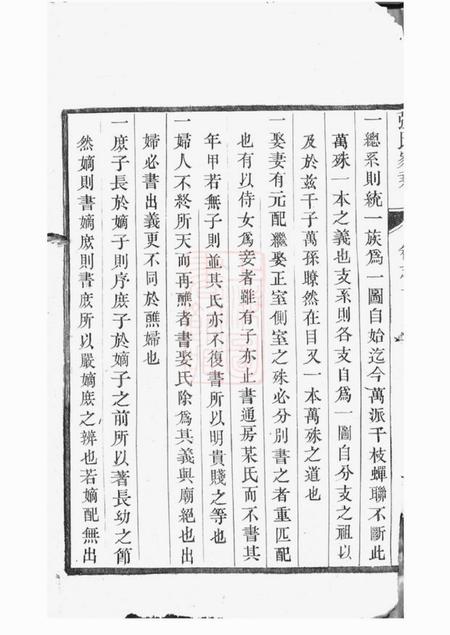 一總系則統一族爲一圖自始迄今萬派千枝蟬聯不斷此
萬殊一本之義也支系則各支自爲一圖自分支之祖以
及於玆千子萬孫瞭然在目又一本萬殊之道也
一娶妻有元配繼娶正室側室之殊必分別書之者重匹配
也有以侍女爲妾者雖有子亦止書通房某氏而不書其
年甲若無子則並其氏亦不復書所以明貴賤之等也
一婦人不終所天而再醮者書娶氏除爲其義與廟絕也出
婦必書出義更不同於醮婦也
一庶子長於嫡子則序庶子於嫡子之前所以著長幼之節
然嫡則書嫡庶則書庶所以嚴嫡庶之辨也若嫡配無出